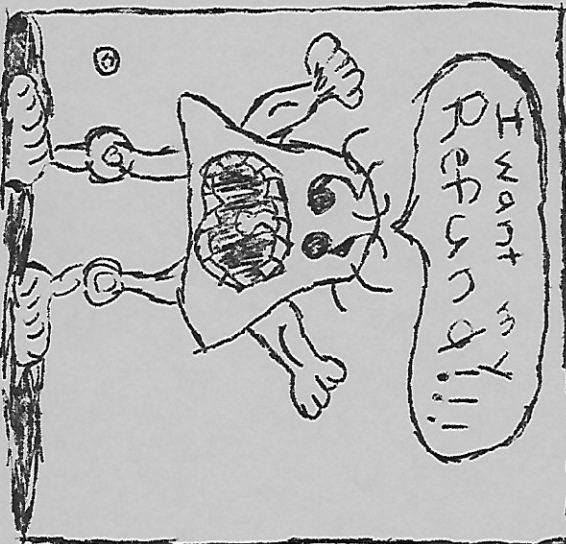 I want my
Refund!!!